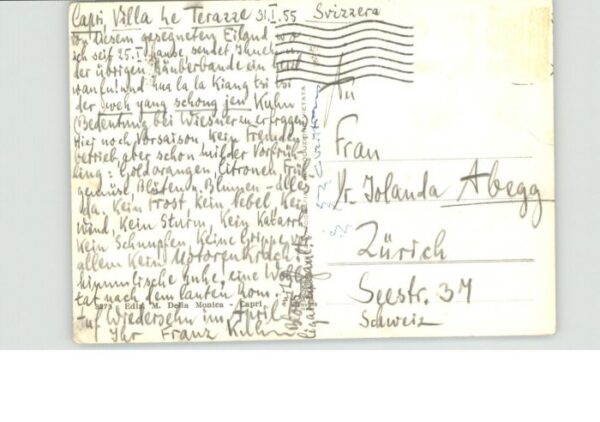 Capri, Villa Le Terazze 31.I.55
Svizzera
diesem gesegneten Eiland wo
ich seit 25.I. hause, sendet Ihnen u
der übrigen Räuberbande ein
wanfu! und hua la la Kiang tsi tsi
der weh yang schong jen Kuhn
(Bedeutung bei Wiesner zu erfragen)
Hier noch Vorsaison kein Fremden
betrieb, aber schon mit der Vorfrüh
ling: Goldorangen, Citronen, Frü
gemüse, Blüten u. Blumen - alles
da. Kein Frost, kein Nebel, kei
Wind, kein Sturm, kein Katarrh
kein Schnupfen, keine Grippe v
allem kein Motorenkrach
himmlische Ruhe, eine Wo
tat nach dem lauten Rom.
Ediz. M. Della Monica - Capri
Auf Wiedersehn im April
Ihr Franz Kuhn
An
Frau
Dr. Jolanda Abegg
Zürich
Seestr. 34
Schweiz